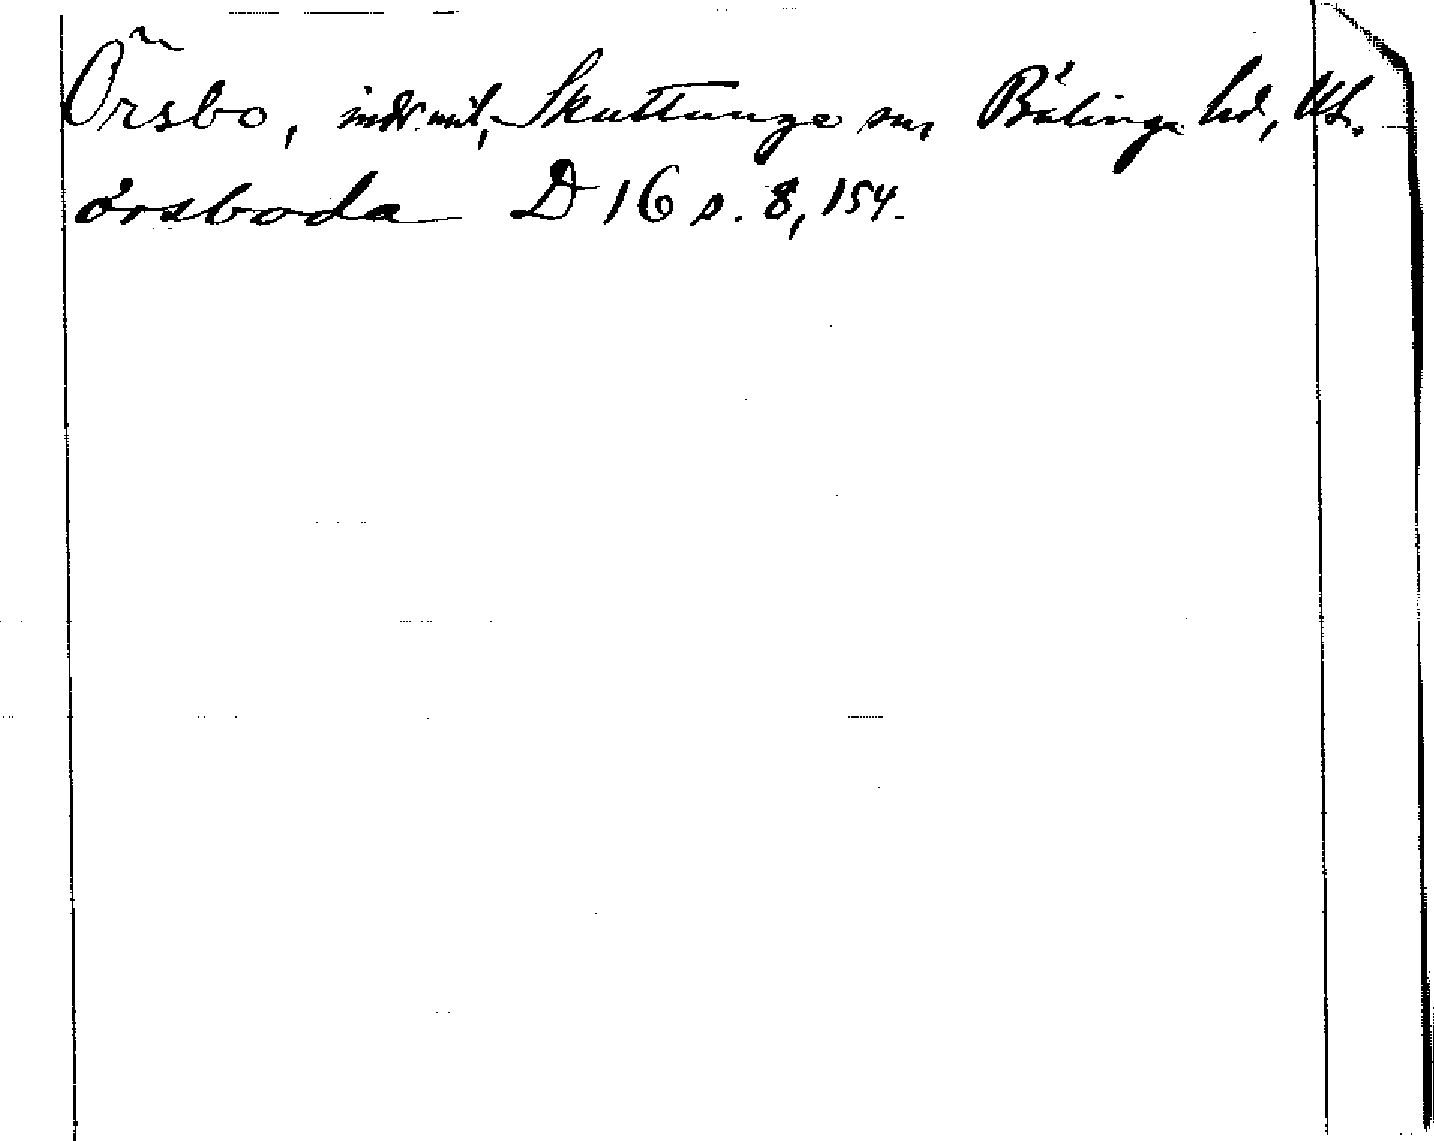 Örsbo, indr. mil, Skuttunge sn, Bälinge hd, Upl.
örsboda D 16 s. 8, 154.